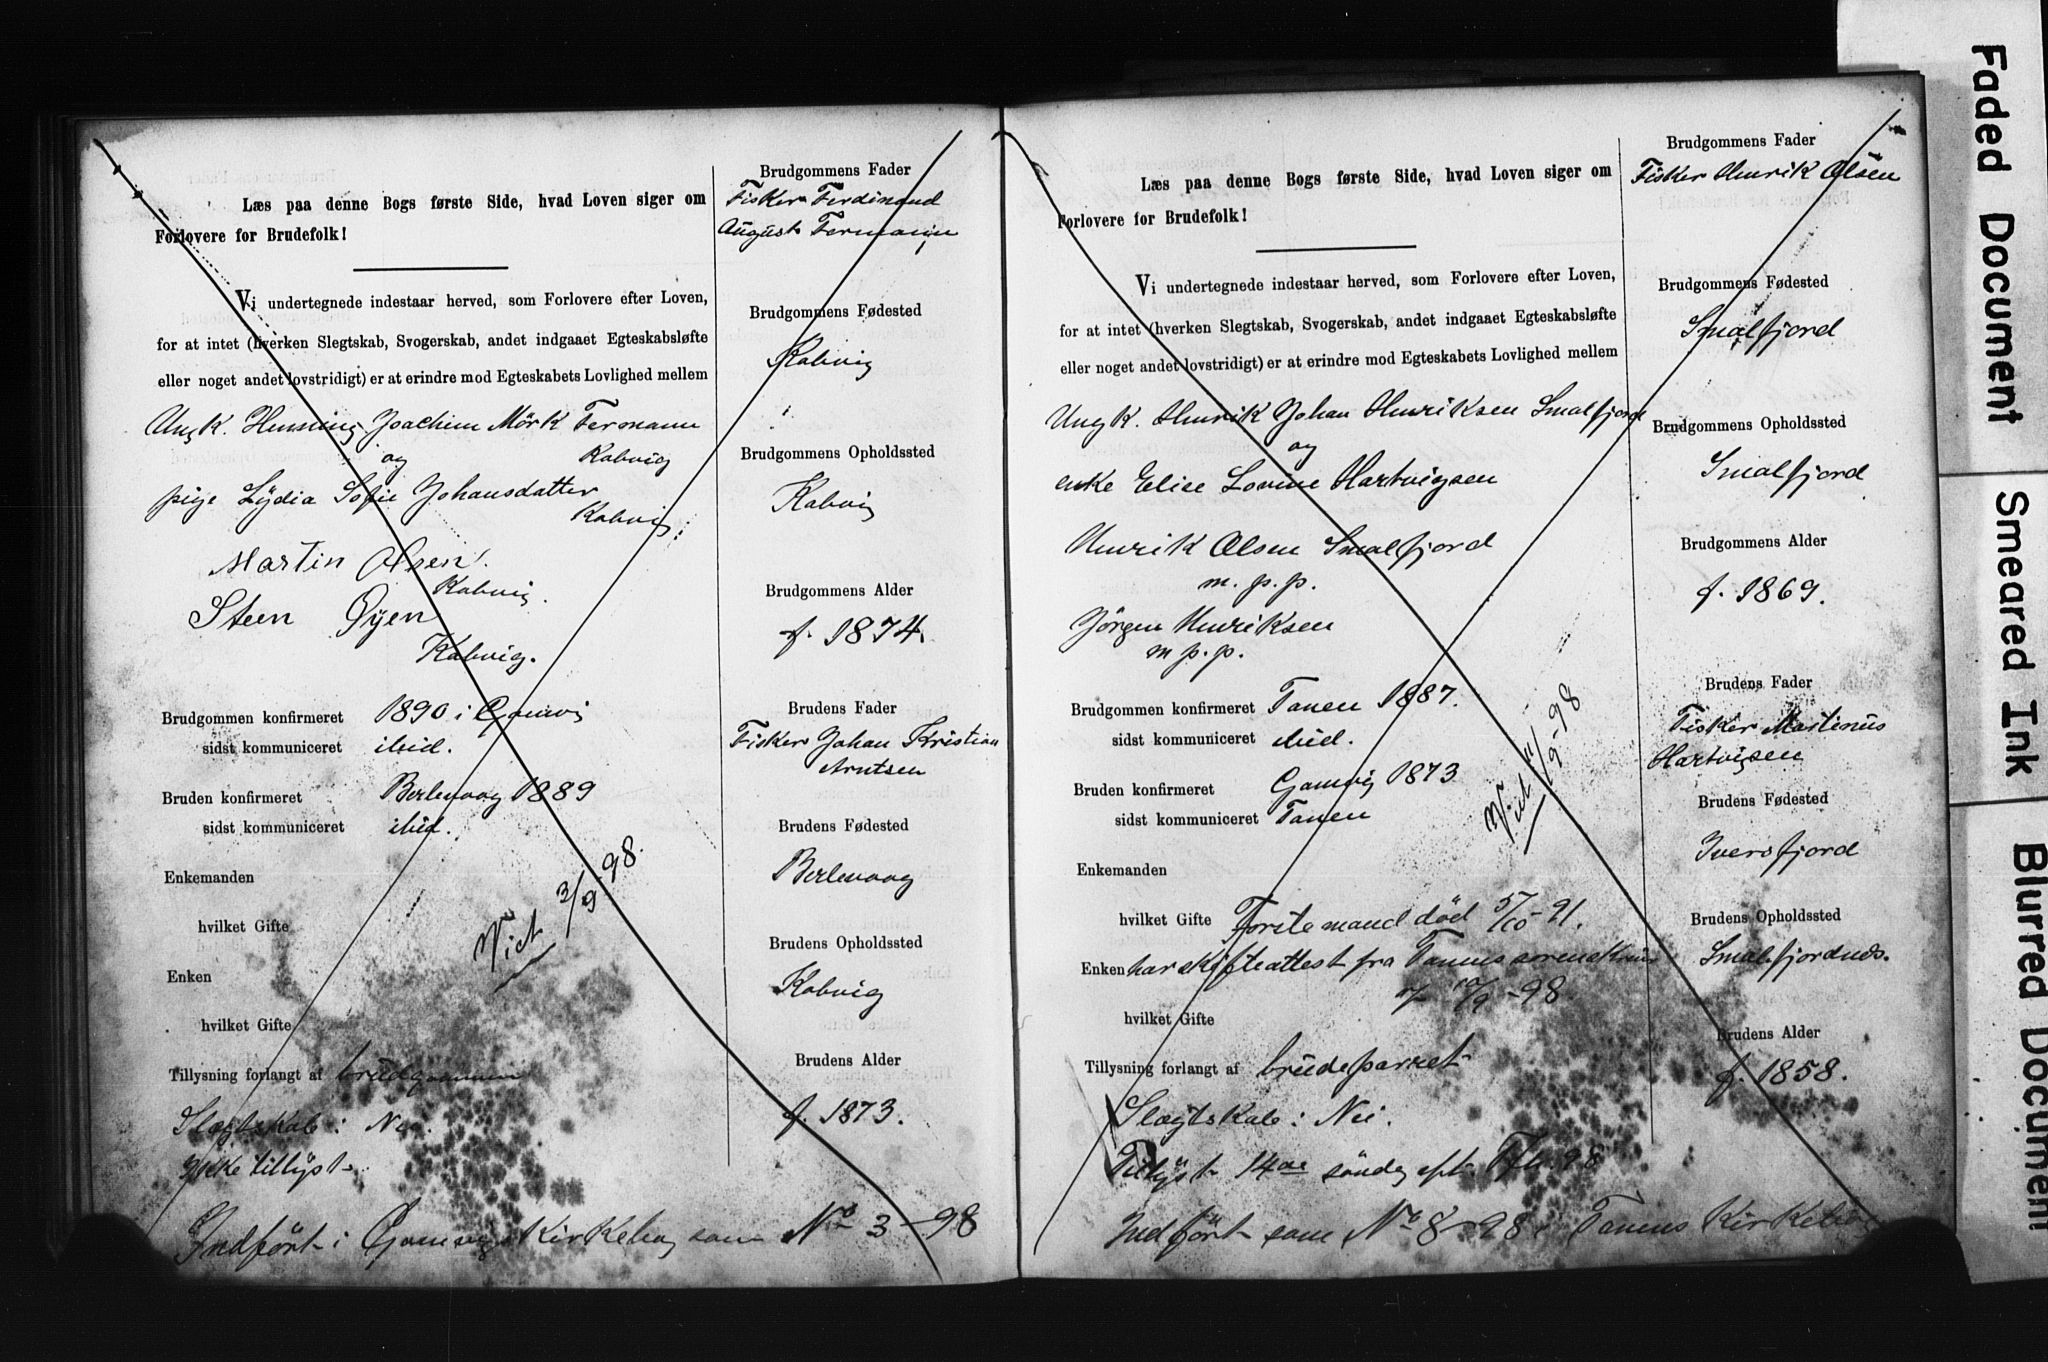 Læs paa denne Bogs første Side, hvad Loven siger om
Forlovere for Brudefolk!
Vi undertegnede indestaar herved, som Forlovere efter Loven,
for at intet (hverken Slegtskab, Svogerskab, andet indgaaet Egteskabsløfte
eller noget andet lovstridigt) er at erindre mod Egteskabets Lovlighed mellem
Ungk. Henning Joachim Mörk Fermann
og Kobvig
pige Lydia Sofie Johansdatter
Kobvig
Martin Olsen
Kobvig.
Steen Øyen
Kobvig.
Brudgommen konfirmeret 1890 i Gamvig
sidst kommuniceret ibid.
Bruden konfirmeret Berlevaag 1889
sidst kommuniceret ibid.
Enkemanden
hvilket Gifte
Viet 3/9 98.
Enken
hvilket Gifte
Tillysning forlangt af brudgommen
Slægtskab: Nei.
Ikke tillyst
Indført i Gamvigs Kirkebog som No 3-98
Brudgommens Fader
Fisker Ferdinand
August Fermann
Brudgommens Fødested
Kobvig
Brudgommens Opholdssted
Kobvig
Brudgommens Alder
f. 1874.
Brudens Fader
Fisker Johan Kristian
Arntsen
Brudens Fødested
Berlevaag
Brudens Opholdssted
Kobvig
Brudens Alder
f. 1873.
Læs paa denne Bogs første Side, hvad Loven siger om
Forlovere for Brudefolk!
Vi undertegnede indestaar herved, som Forlovere efter Loven,
for at intet (hverken Slegtskab, Svogerskab, andet indgaaet Egteskabsløfte
eller noget andet lovstridigt) er at erindre mod Egteskabets Lovlighed mellem
Ungk. Henrik Johan Henriksen Smalfjord
og
enke Elise Lovine Hartvigsen
Henrik Olsen Smalfjord
m. p. p.
Jörgen Henriksen
m p. p.
Brudgommen konfirmeret Tanen 1887.
sidst kommuniceret ibid.
Bruden konfirmeret Gamvig 1873
sidst kommuniceret Tanen
Viet 11/9-98
Enkemanden
hvilket Gifte Forste mand död 5/10-91.
Enken har skifteattest fra Tanens sorenskriv
10/9-98
hvilket Gifte
Tillysning forlangt af brudeparret
Slægtskab: Nei.
Tillyst 14de söndag eft Tfh. 98
Indført som No 8-98 i Tanens Kirkebog
Brudgommens Fader
Fisker Henrik Olsen
Brudgommens Fødested
Smalfjord
Brudgommens Opholdssted
Smalfjord
Brudgommens Alder
f. 1869.
Brudens Fader
Fisker Martinus
Hartvigsen
Brudens Fødested
Iversfjord
Brudens Opholdssted
Smalfjordnes.
Brudens Alder
f. 1858.
Faded Document
Smeared Ink
Blurred Document